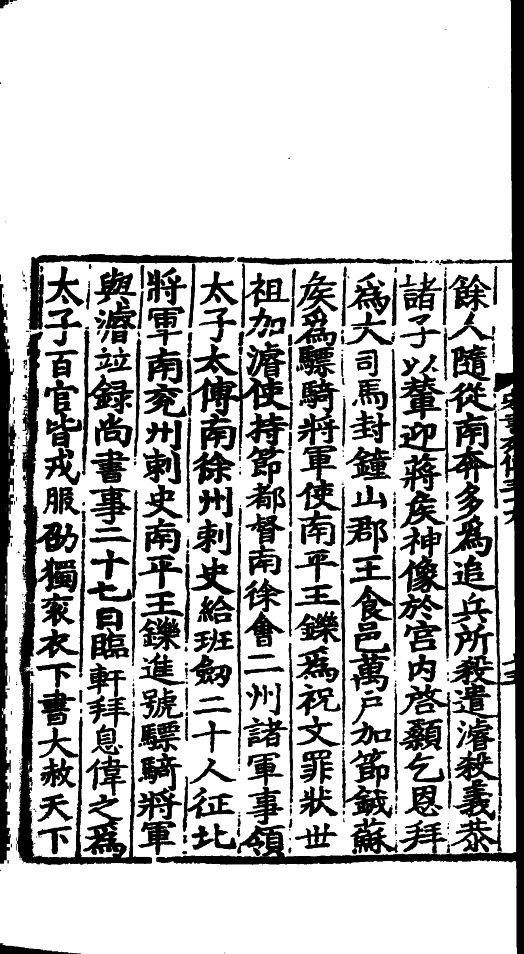 餘人隨從南奔多爲追兵所殺遣濬殺義恭
諸子以輦迎蔣矦神像於宮内啓顙乞恩拜
爲大司馬封鐘山郡王食邑萬戸加節鉞蘇
矦爲驃騎將軍使南平王鑠爲祝文罪狀世
祖加濬使持節都督南徐會二州諸軍事領
太子太傅南徐州刺史給班劒二十人征北
將軍南兖州刺史南平王鑠進號驃騎將軍
與濬竝録尚書事二十七日臨軒拜息偉之爲
太子百官皆戎服劭獨衮衣下書大赦天下